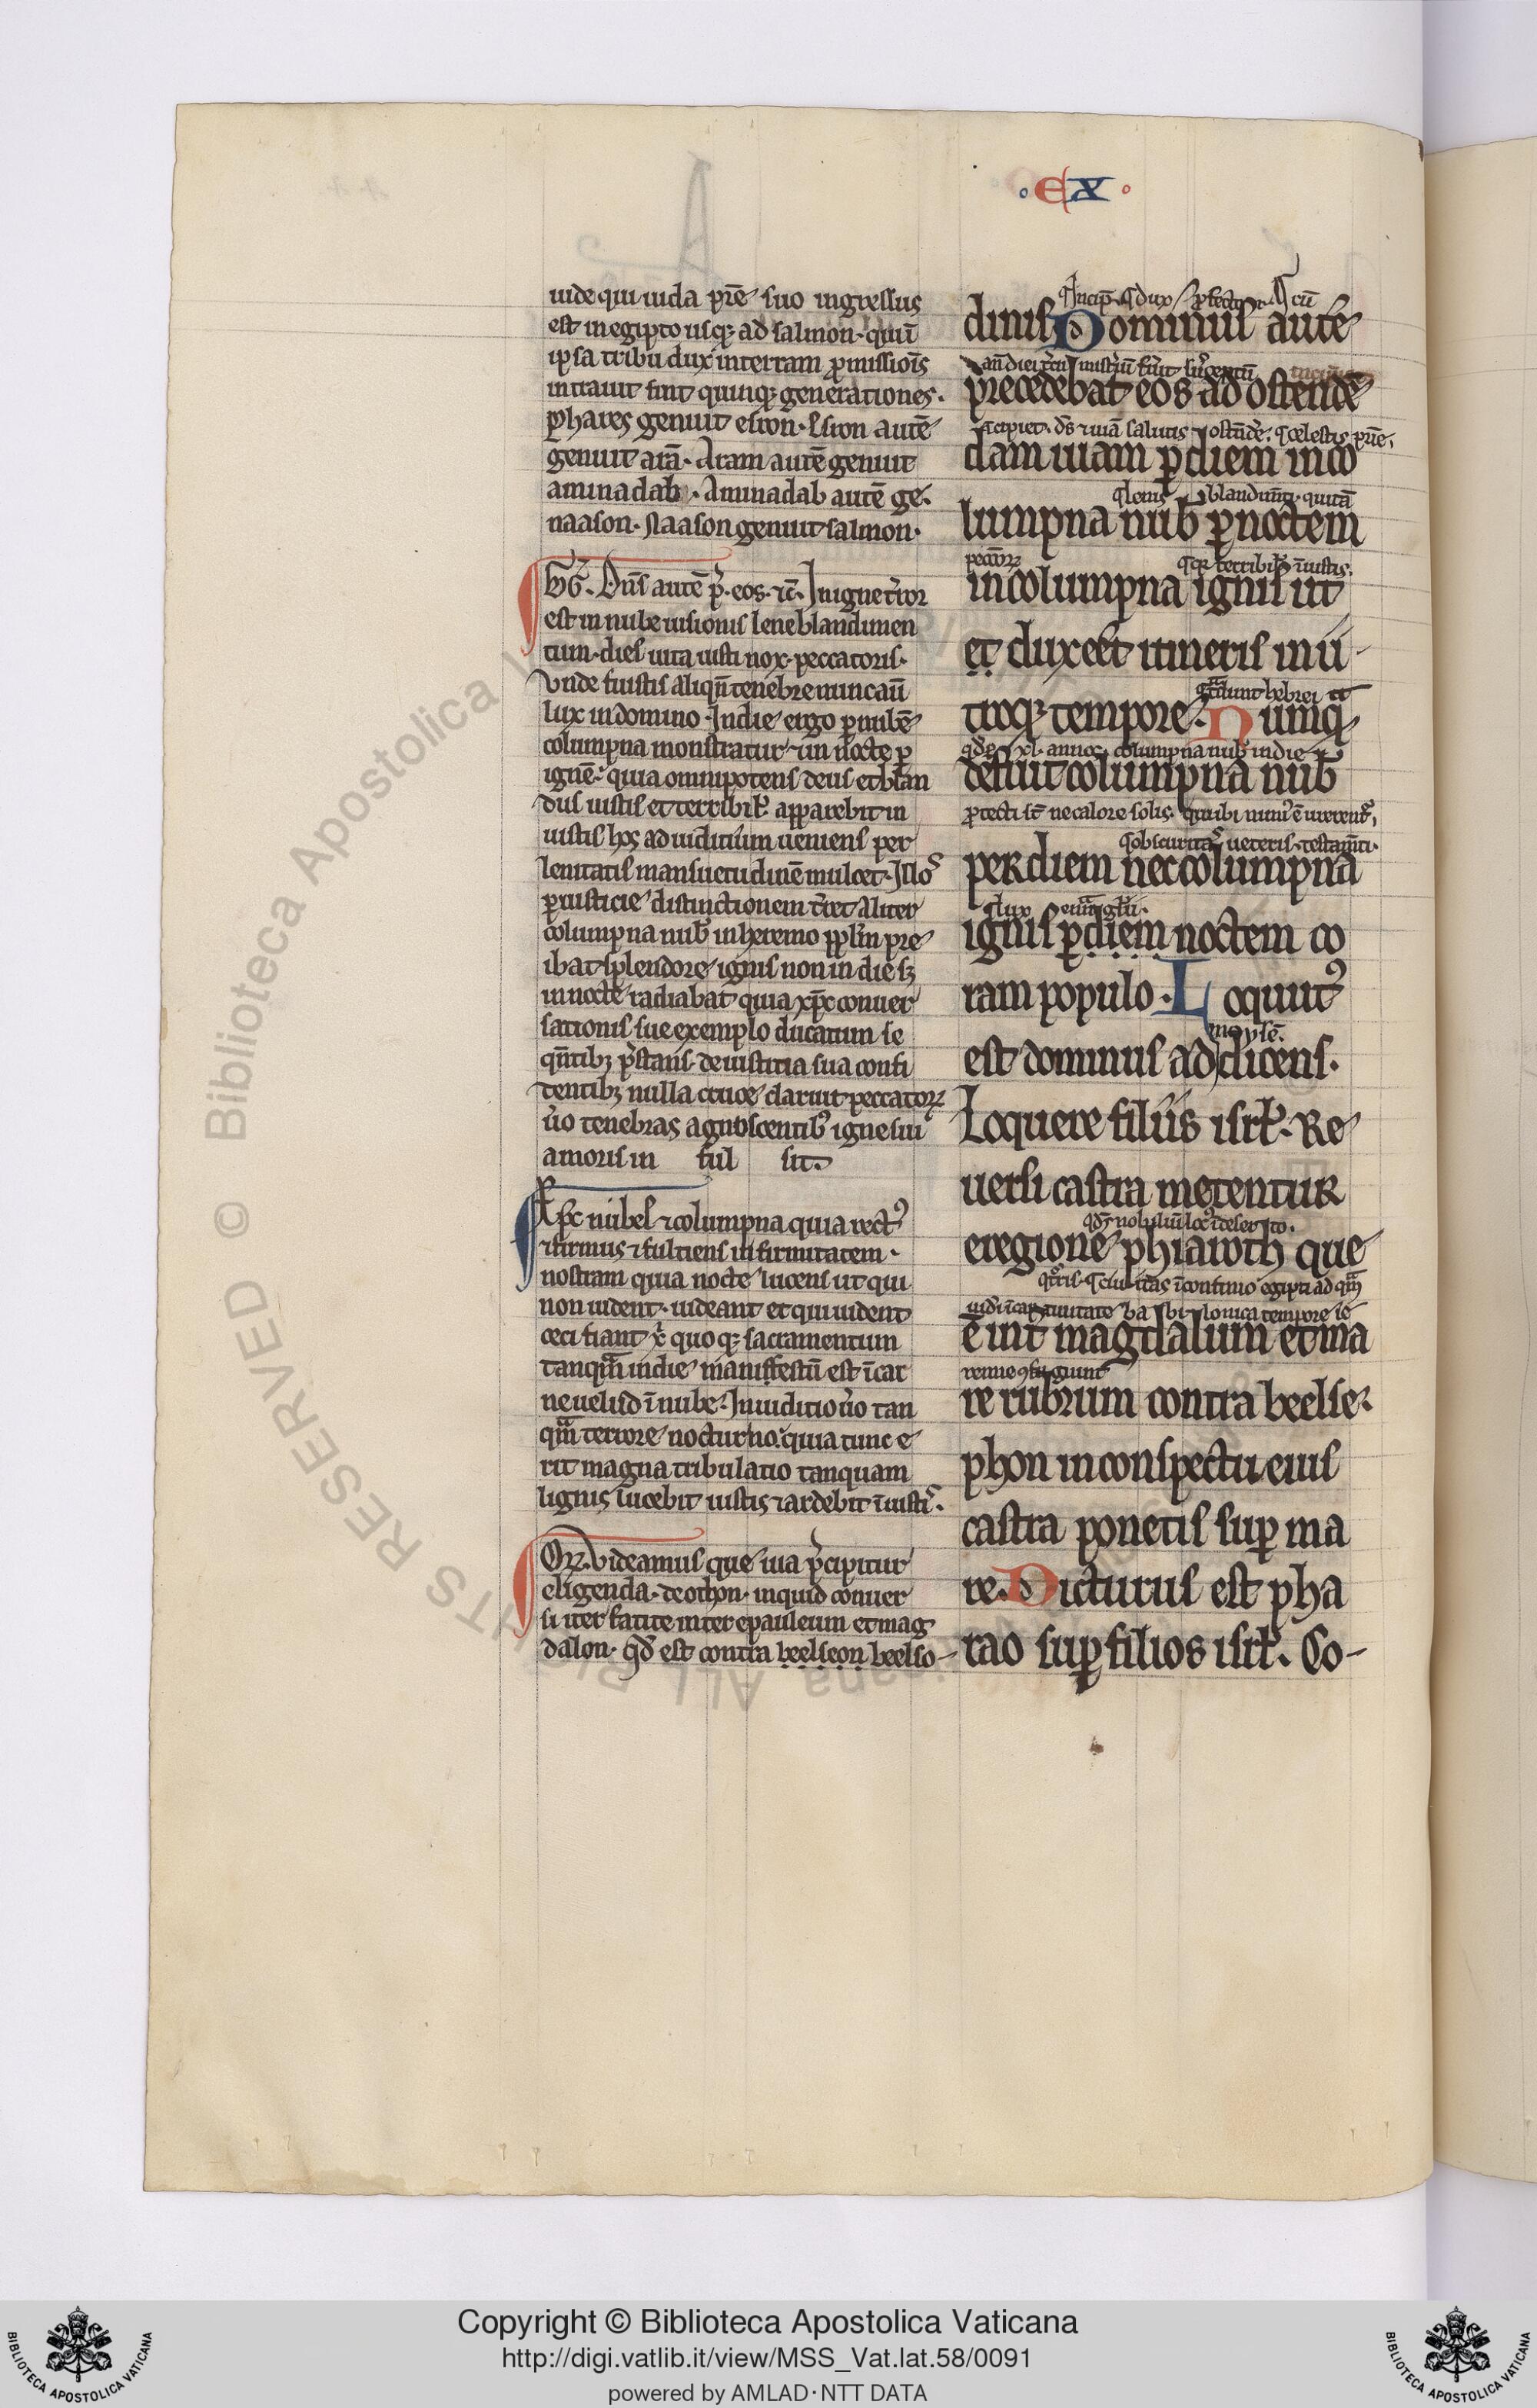 EX
uide qui iuda pr̄e suo ingressus
est in egipto usq; ad salmon. qui ī
ipsa tribu dux in terram ꝓmissiōis
intrauit sint quinq; generationes.
phares genuit esron. Esron autē
genuit arā. Aram autē genuit
aminadab. Aminadab autē ge.
naason. Naason genuit salmon.
Dn̄s autē p̄. eos. ⁊c̄. In igne t̄ror
est in nube uisionis lene blandimen
tum. dies uita iusti nox peccatoris.
Vnde fuistis aliqn̄ tenebre nunc aū
lux in domino. In die ergo ꝑ nubē
columpna monstratur ⁊ in nocte ꝑ
ignē. quia omnipotens deus et blan
dus iustis et terribil' apparebit in
iustis hos ad iuditium ueniens per
lenitatis mansuetudinē mulcet. Illos
ꝑ iusticie distinctionem t̄ret Aliter
columpna nub' in heremo ppl'm pre
ibat splendore ignis non in die s;
in nocte radiabat quia xp̄c conuer
sationis sue exemplo ducatum se
qn̄tib; p̄stans. de iustitia sua confi
tentib; nulla cruce claruit peccatorꝝ
ū̄o tenebras agnoscentib' igne sui
amoris in ful sit.
Xp̄c nubes ⁊ columpna quia rect'
⁊ firmus ⁊ fulciens infirmitatem.
nostram quia nocte lucens ut qui
non uident. uideant et qui uident
ceci fiant x̄ quoq; sacramentum
tanqm̄ in die manifestū est ī car
ne uelud ī nube. In iuditio ū̄o tan
qm̄ terrore nocturno. quia tunc e
rit magna tribulatio tanquam
lignis lucebit iustis ⁊ ardebit ī iustis.
Videamus que uia p̄cipitur
eligenda. de othon. inquid conuer
si iter facite inter epauleum et mag
dalon. qd̄ est contra beelseon beelso-
dinis. Dominus autē
precedebat eos ad ostendē
dam uiam ꝑ diem in co
lumpna nub' ꝑ noctem
in columpna ignis ut
et dux eēt itineris in ū
troq; tempore. Nunq̄
defuit columpna nub'
per diem nec columpna
ignis ꝑ diem noctem co
ram populo. Loquut'
moysē.
est dominus ad dicens.
Loquere filiis isrl'. Re
uersi castra metentur
e regione phiairoth que
ē int̄ magdalum et ma
re rubrum contra beelse.
phon in conspectu eius
castra ponetis sup̄ ma
re. Dicturus est pha
rao sup̄ filios isrl'. Co-
Copyright © Biblioteca Apostolica Vaticana
http://digi.vatlib.it/view/MSS_Vat.lat.58/0091
powered by AMLAD·NTT DATA
BIBLIOTECA APOSTOLICA VATICANA
BIBLIOTECA APOSTOLICA VATICANA